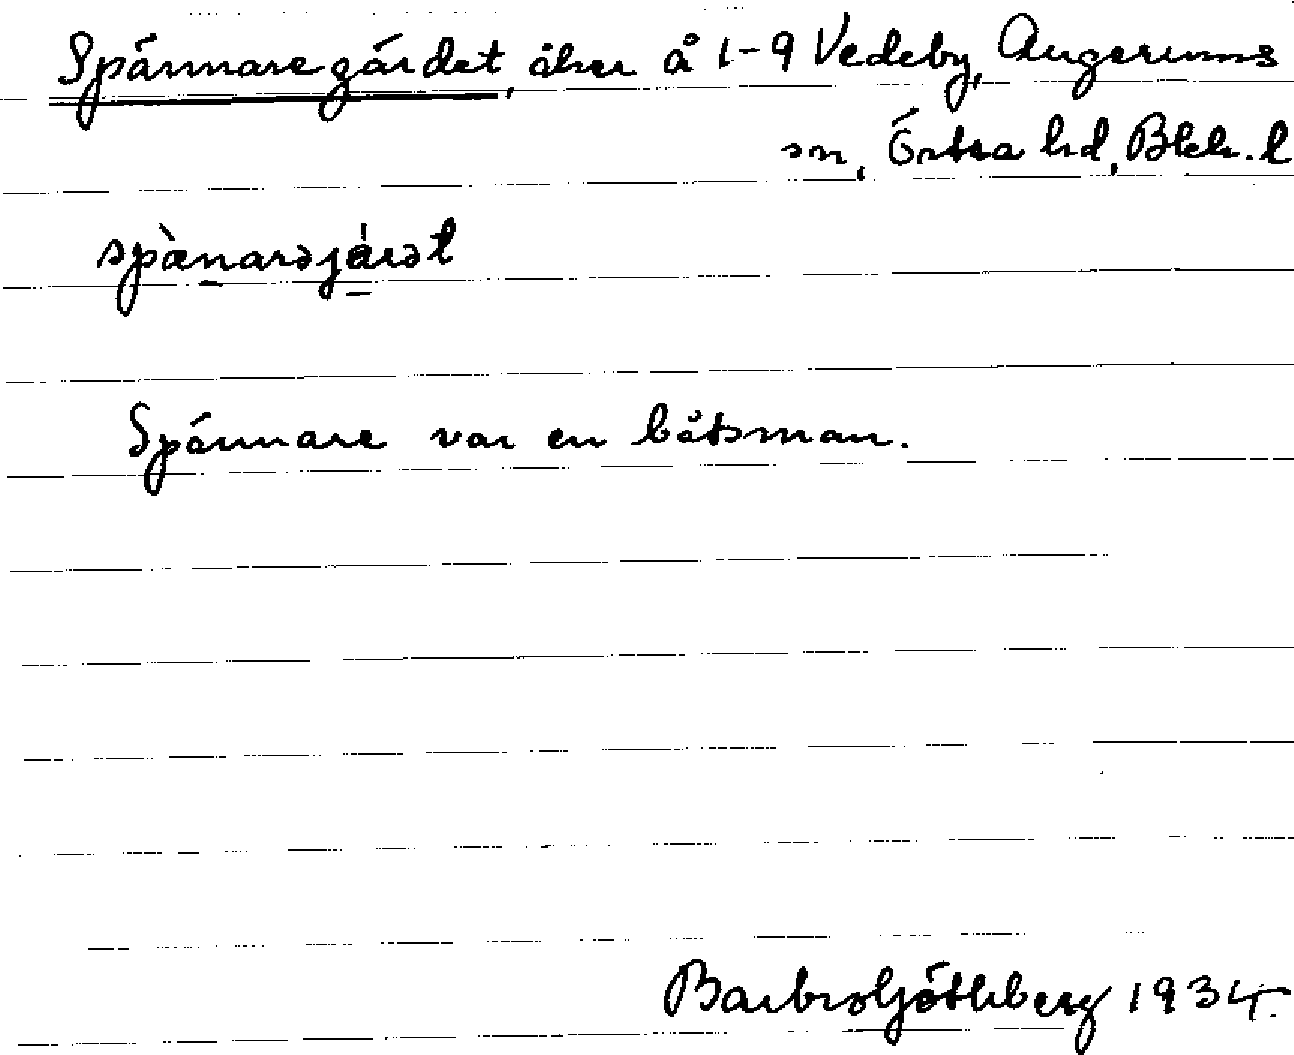 Spännaregärdet, åker å 1-9 Vedeby, Augerums
sn, Östra hd, Blek. l
spànarəjárət
Spännare var en båtsman.
Barbro Götlberg 1934.